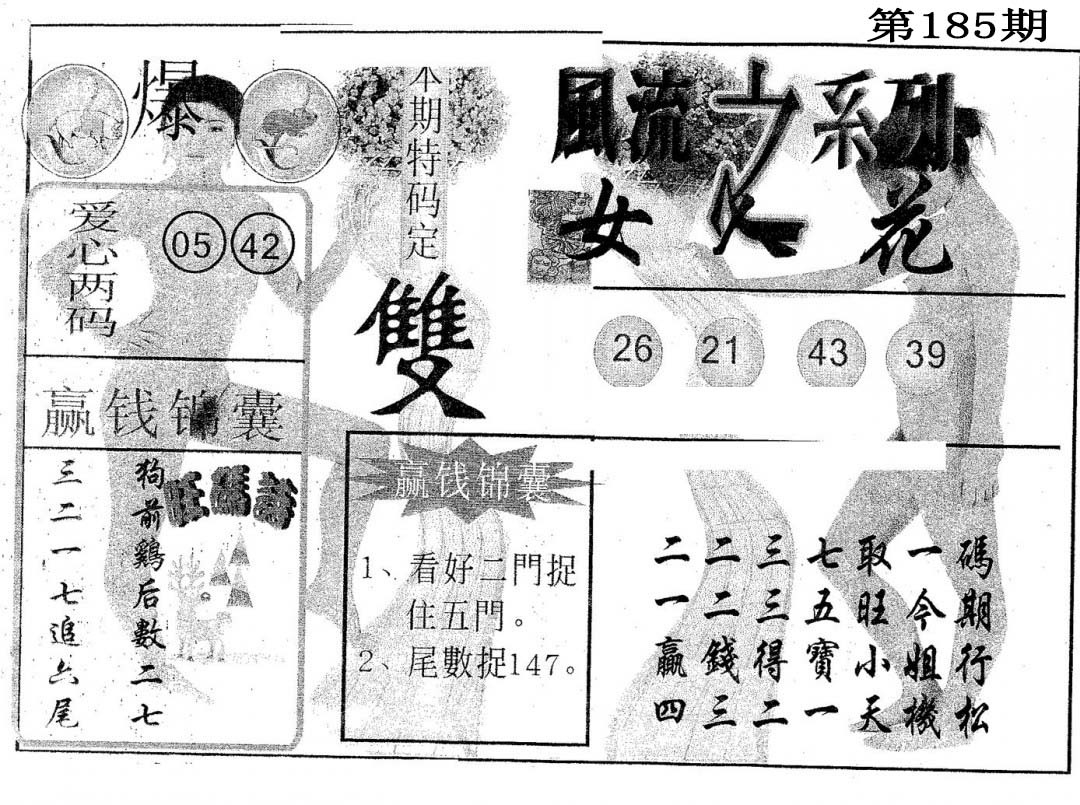 第185期
風流 系列
女 花
26 21 43 39
爆
本期特码定
雙
爱心两码
05 42
赢钱锦囊
狗前鷄后數二七
三二一七追六尾
赢钱锦囊
1、看好二門捉
住五門。
2、尾數捉147。
碼期行松
一今姐機
取旺小天
七五寶一
三三得二
二二錢三
二一贏四